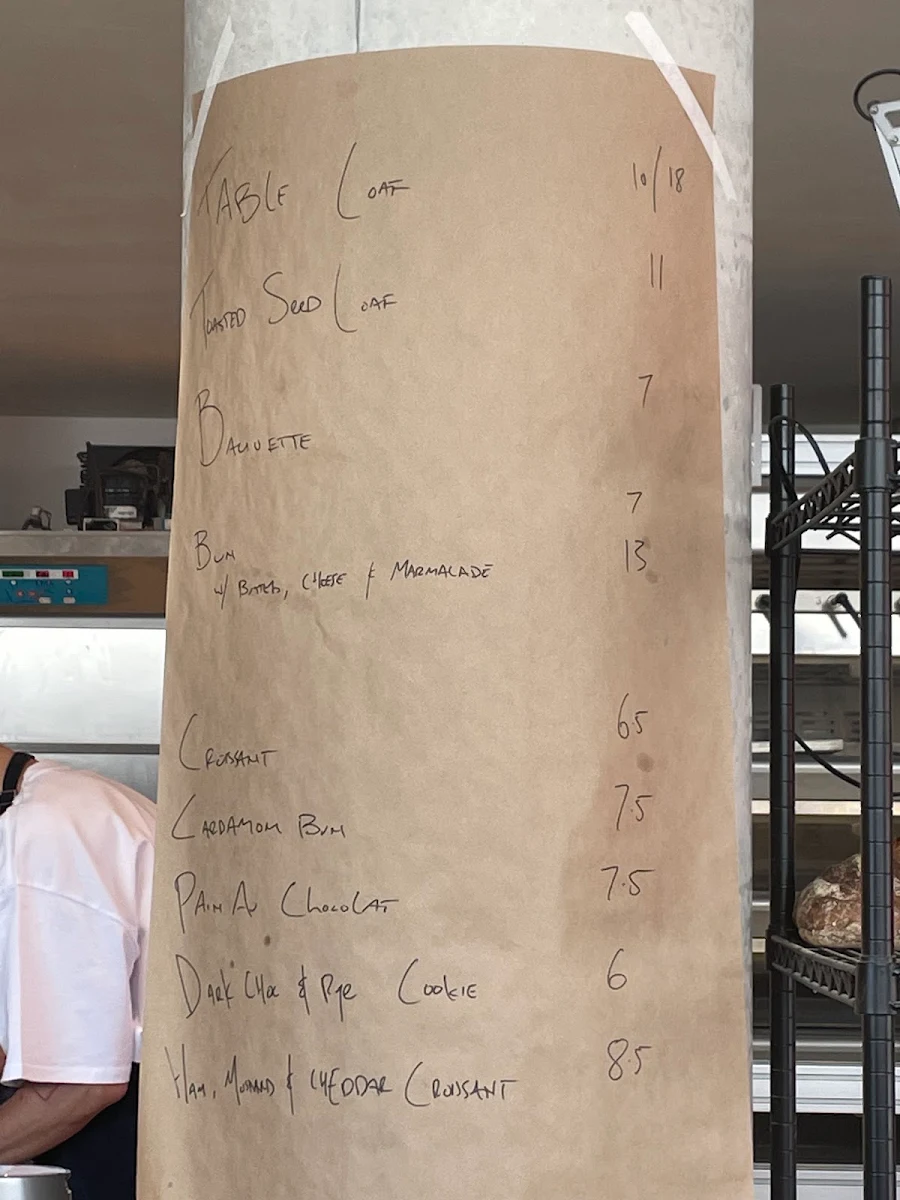 TABLE LOAF 10/18
TOASTED SEED LOAF 11
BAGUETTE 7
BUN 7
w/ BUTTER, CHEESE & MARMALADE 13
CROISSANT 6.5
CARDAMOM BUN 7.5
PAIN AU CHOCOLAT 7.5
DARK CHOC & RYE COOKIE 6
HAM, MUSTARD & CHEDDAR CROISSANT 8.5